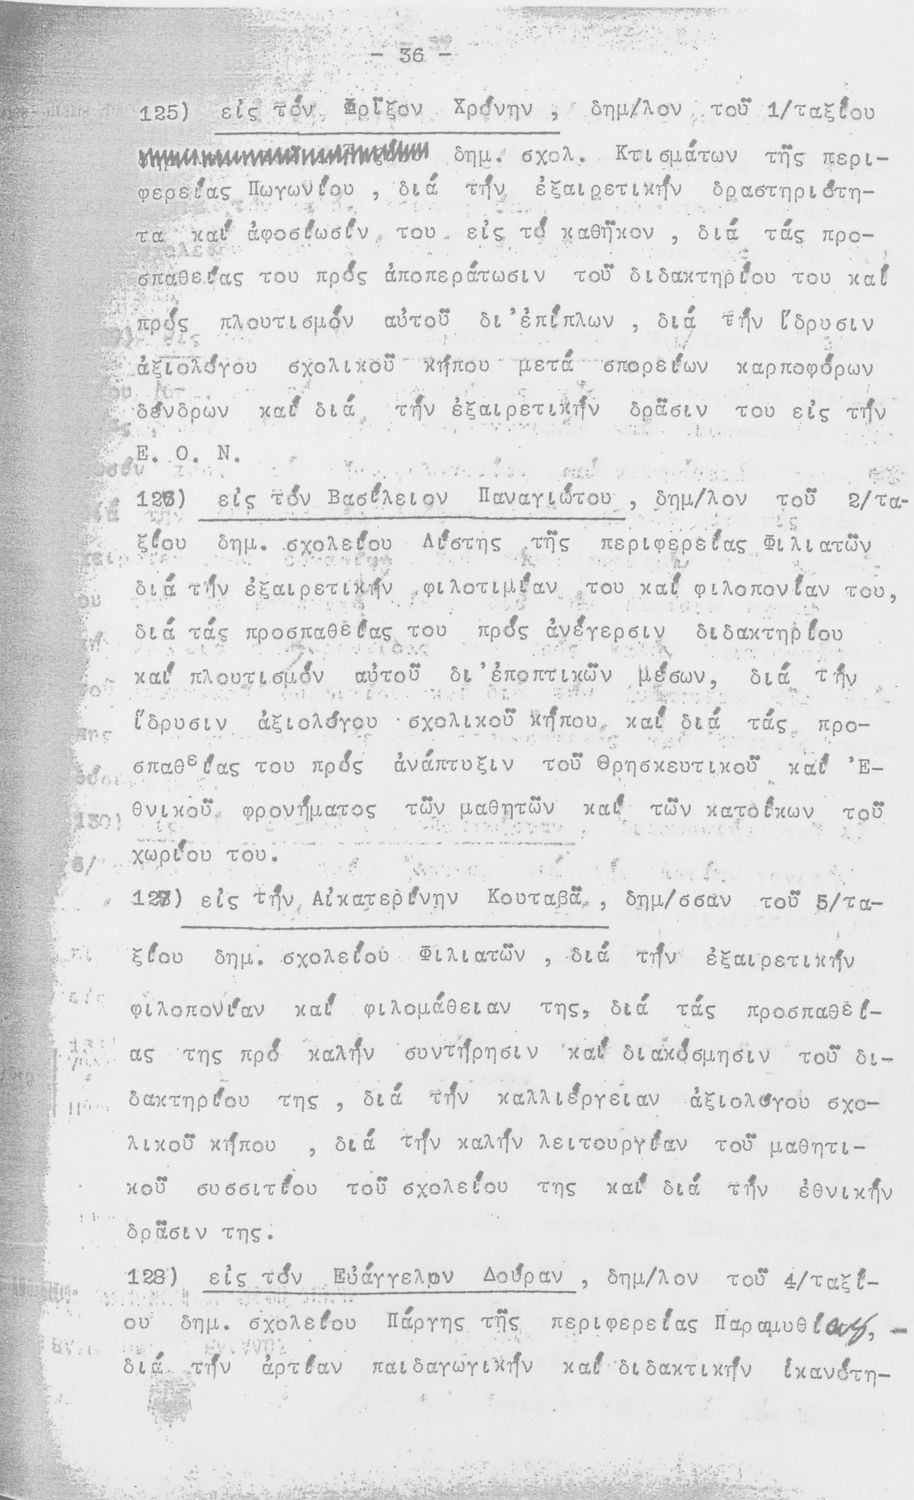 - 36 -
125) εἰς τόν Φρῖξον Χρόνην , δημ/λον τοῦ 1/ταξίου
δημ. σχολ. Κτισμάτων τῆς περι-
φερείας Πωγωνίου , διά τήν ἐξαιρετικήν δραστηριότη-
τα καί ἀφοσίωσίν του εἰς τό καθῆκον , διά τάς προ-
σπαθείας του πρός ἀποπεράτωσιν τοῦ διδακτηρίου του καί
πρός πλουτισμόν αὐτοῦ δι'ἐπίπλων , διά τήν ἵδρυσιν
ἀξιολόγου σχολικοῦ κήπου μετά σπορείων καρποφόρων
δένδρων καί διά τήν ἐξαιρετικήν δρᾶσιν του εἰς τήν
Ε. Ο. Ν.
126) εἰς τόν Βασίλειον Παναγιώτου , δημ/λον τοῦ 2/τα-
ξίου δημ. σχολείου Λίστης τῆς περιφερείας Φιλιατῶν
διά τήν ἐξαιρετικήν φιλοτιμίαν του καί φιλοπονίαν του,
διά τάς προσπαθείας του πρός ἀνέγερσιν διδακτηρίου
καί πλουτισμόν αὐτοῦ δι'ἐποπτικῶν μέσων, διά τήν
ἵδρυσιν ἀξιολόγου σχολικοῦ κήπου καί διά τάς προ-
σπαθείας του πρός ἀνάπτυξιν τοῦ θρησκευτικοῦ καί Ἐ-
θνικοῦ φρονήματος τῶν μαθητῶν καί τῶν κατοίκων τοῦ
χωρίου του.
127) εἰς τήν Αἰκατερίνην Κουταβᾶ , δημ/σσαν τοῦ 5/τα-
ξίου δημ. σχολείου Φιλιατῶν , διά τήν ἐξαιρετικήν
φιλοπονίαν καί φιλομάθειαν της, διά τάς προσπαθεί-
ας της πρό καλήν συντήρησιν καί διακόσμησιν τοῦ δι-
δακτηρίου της , διά τήν καλλιέργειαν ἀξιολόγου σχο-
λικοῦ κήπου , διά τήν καλήν λειτουργίαν τοῦ μαθητι-
κοῦ συσσιτίου τοῦ σχολείου της καί διά τήν ἐθνικήν
δρᾶσιν της.
128) εἰς τόν Εὐάγγελον Δούραν , δημ/λον τοῦ 4/ταξί-
ου δημ. σχολείου Πάργης τῆς περιφερείας Παραμυθίας, -
διά τήν ἀρτίαν παιδαγωγικήν καί διδακτικήν ἱκανότη-